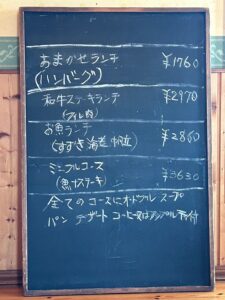 あまがせランチ ¥1760
(ハンバーグ)
和牛ステーキランチ ¥2970
お魚ランチ ¥2860
(すずき 海老 帆立)
ミニフルコース ¥3630
(魚 ステーキ)
全てのコースにオードブル スープ
パン デザート コーヒー 付